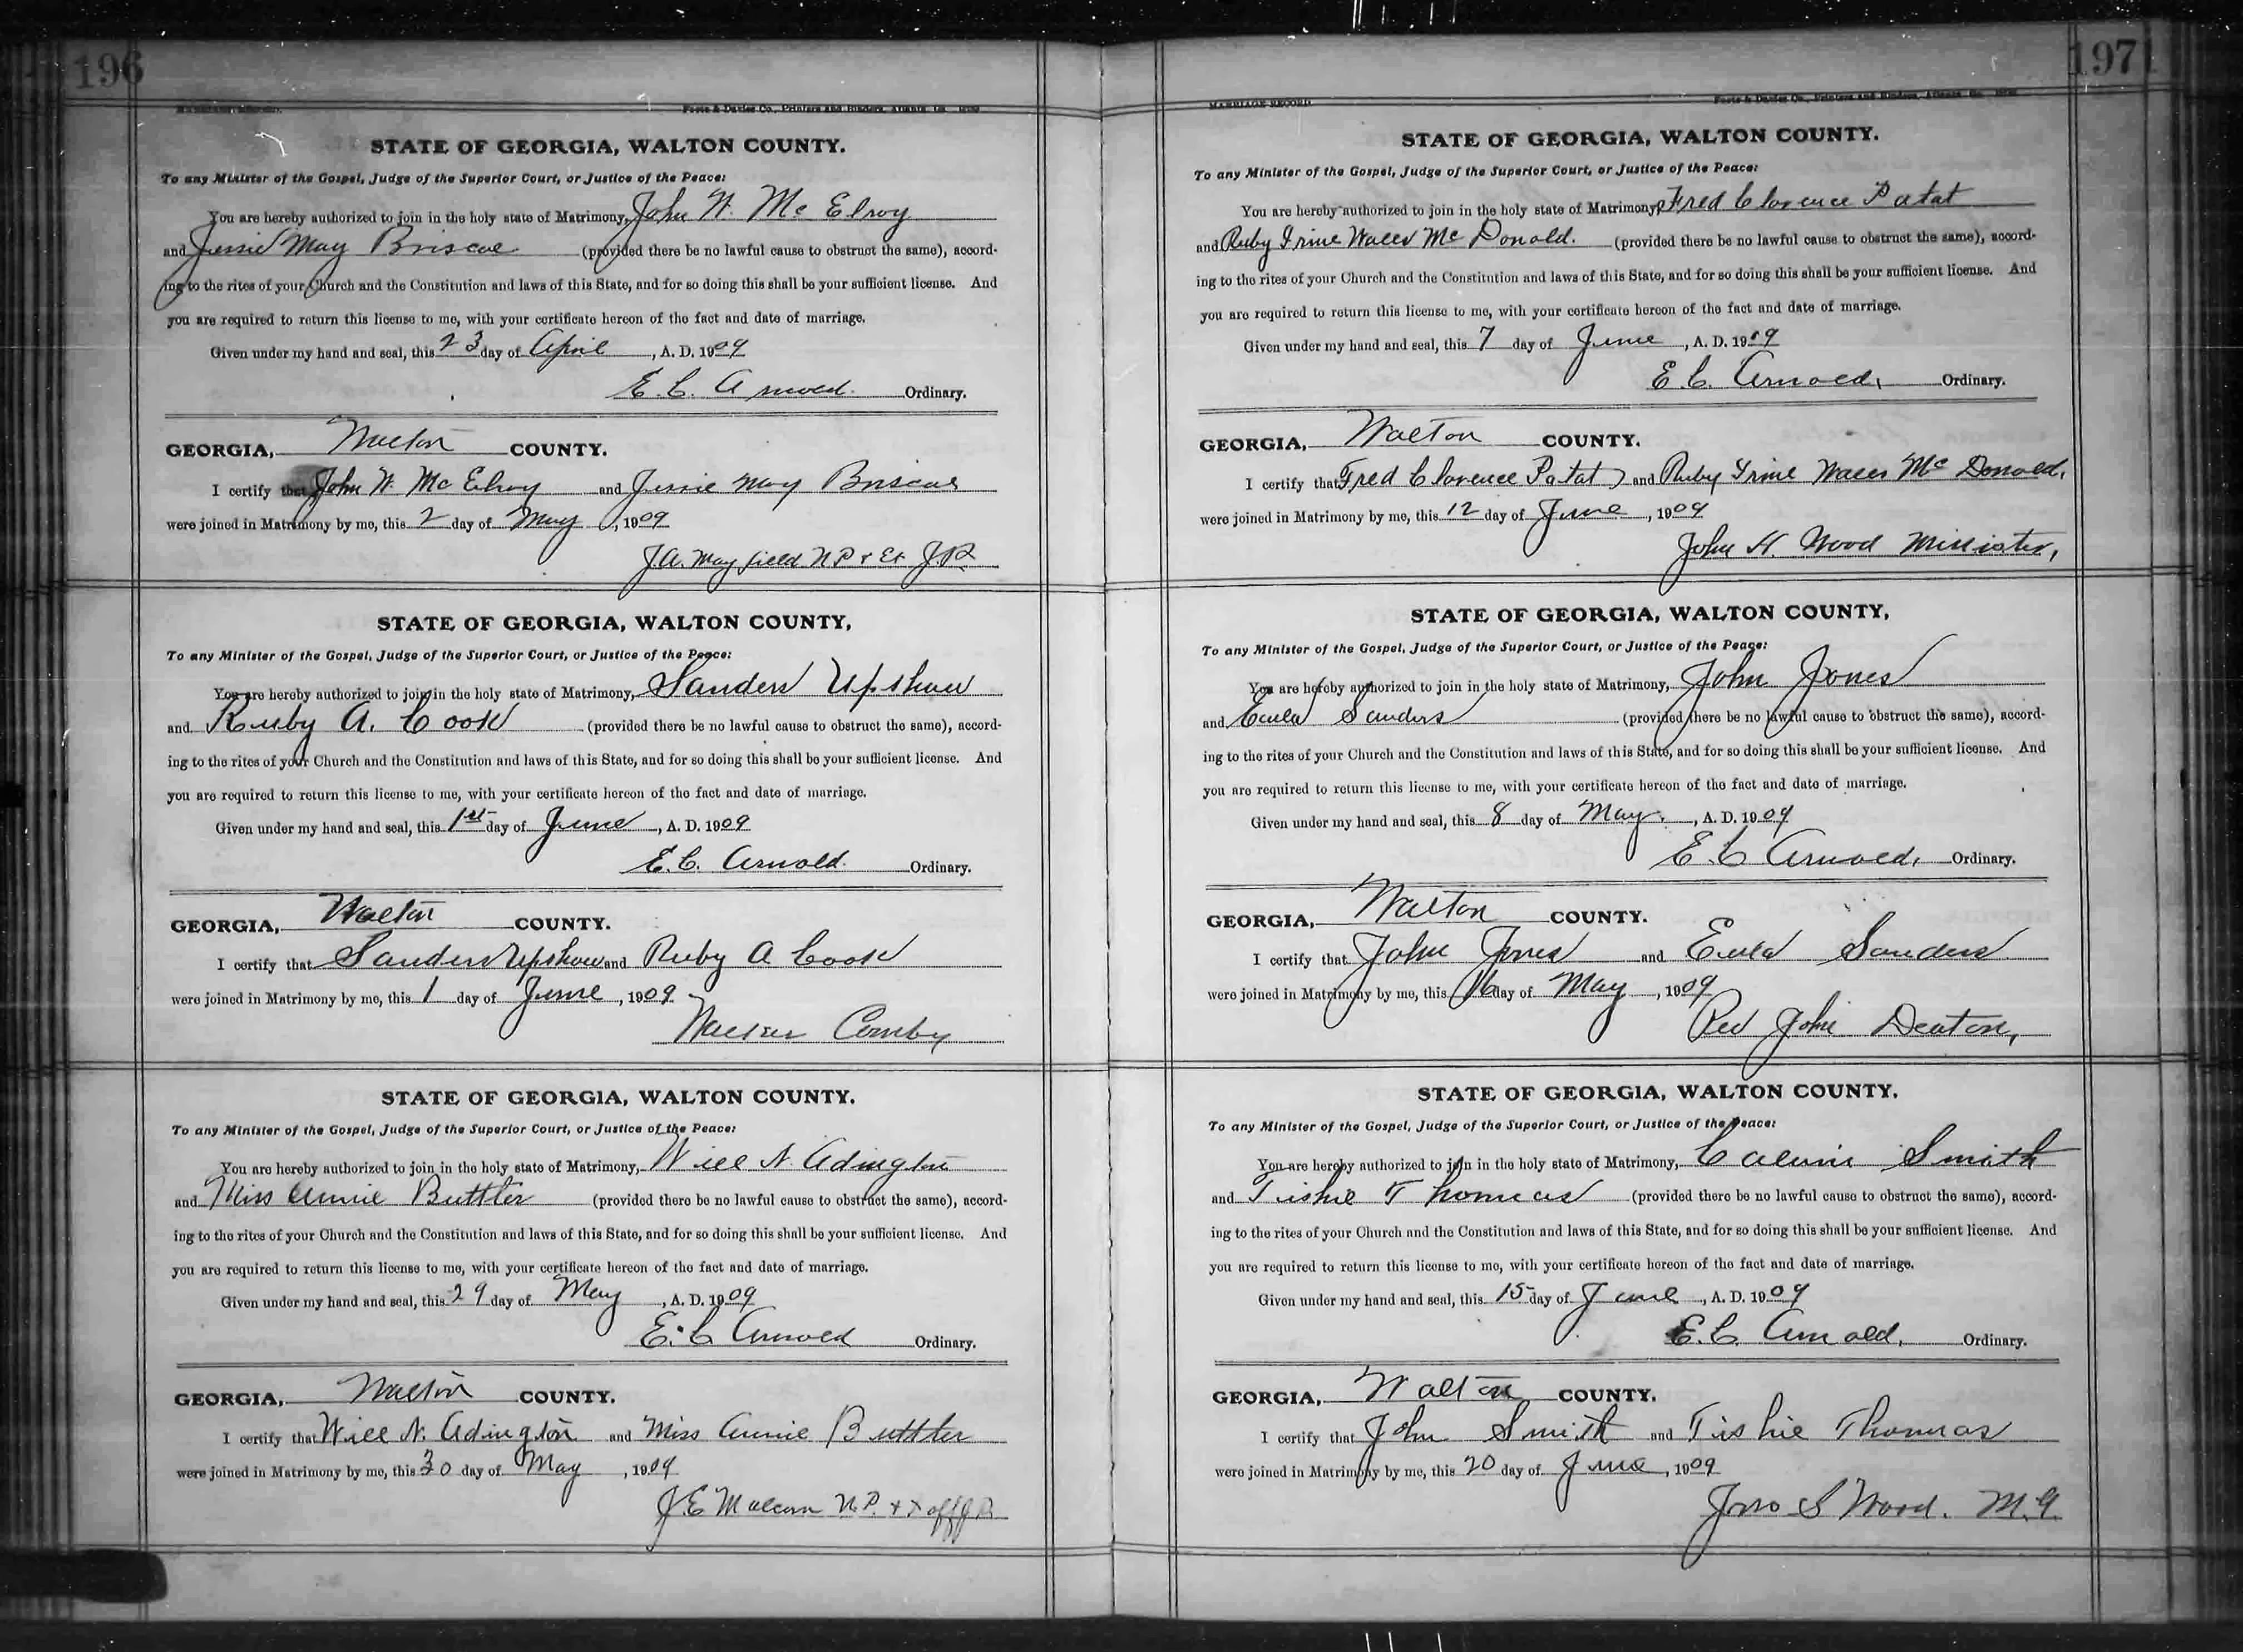 196
MARRIAGE RECORD. Foote & Davies Co., Printers and Binders, Atlanta, Ga.
STATE OF GEORGIA, WALTON COUNTY.
To any Minister of the Gospel, Judge of the Superior Court, or Justice of the Peace:
You are hereby authorized to join in the holy state of Matrimony, John W. Mc Elroy
and Jessie May Briscoe (provided there be no lawful cause to obstruct the same), accord-
ing to the rites of your Church and the Constitution and laws of this State, and for so doing this shall be your sufficient license. And
you are required to return this license to me, with your certificate hereon of the fact and date of marriage.
Given under my hand and seal, this 23 day of April, A. D. 1909
E. C. Arnold. Ordinary.
GEORGIA, Walton COUNTY.
I certify that John W. Mc Elroy and Jessie May Briscoe
were joined in Matrimony by me, this 2 day of May, 1909
J. A. Mayfield N. P. & Ex J. P.
STATE OF GEORGIA, WALTON COUNTY,
To any Minister of the Gospel, Judge of the Superior Court, or Justice of the Peace:
You are hereby authorized to join in the holy state of Matrimony, Sanders Upshaw
and Ruby A. Cook (provided there be no lawful cause to obstruct the same), accord-
ing to the rites of your Church and the Constitution and laws of this State, and for so doing this shall be your sufficient license. And
you are required to return this license to me, with your certificate hereon of the fact and date of marriage.
Given under my hand and seal, this 1st day of June, A. D. 1909
E. C. Arnold. Ordinary.
GEORGIA, Walton COUNTY.
I certify that Sanders Upshaw and Ruby A Cook
were joined in Matrimony by me, this 1 day of June, 1909
Walker Comby
STATE OF GEORGIA, WALTON COUNTY.
To any Minister of the Gospel, Judge of the Superior Court, or Justice of the Peace:
You are hereby authorized to join in the holy state of Matrimony, Will N. Adington
and Miss Annie Buttler (provided there be no lawful cause to obstruct the same), accord-
ing to the rites of your Church and the Constitution and laws of this State, and for so doing this shall be your sufficient license. And
you are required to return this license to me, with your certificate hereon of the fact and date of marriage.
Given under my hand and seal, this 29 day of May, A. D. 1909
E. C. Arnold Ordinary.
GEORGIA, Walton COUNTY.
I certify that Will N. Adington and Miss Annie Buttler
were joined in Matrimony by me, this 30 day of May, 1909
J. E Malcom N. P. & J. P.
197
MARRIAGE RECORD Foote & Davies Co., Printers and Binders, Atlanta, Ga.
STATE OF GEORGIA, WALTON COUNTY.
To any Minister of the Gospel, Judge of the Superior Court, or Justice of the Peace:
You are hereby authorized to join in the holy state of Matrimony, Fred Clarence Patat
and Ruby Irine Mc Donald. (provided there be no lawful cause to obstruct the same), accord-
ing to the rites of your Church and the Constitution and laws of this State, and for so doing this shall be your sufficient license. And
you are required to return this license to me, with your certificate hereon of the fact and date of marriage.
Given under my hand and seal, this 7 day of June, A. D. 1909
E. C. Arnold, Ordinary.
GEORGIA, Walton COUNTY.
I certify that Fred Clarence Patat and Ruby Irine Mc Donald,
were joined in Matrimony by me, this 12 day of June, 1909
John H. Wood Minister,
STATE OF GEORGIA, WALTON COUNTY,
To any Minister of the Gospel, Judge of the Superior Court, or Justice of the Peace:
You are hereby authorized to join in the holy state of Matrimony, John Jones
and Eula Sanders (provided there be no lawful cause to obstruct the same), accord-
ing to the rites of your Church and the Constitution and laws of this State, and for so doing this shall be your sufficient license. And
you are required to return this license to me, with your certificate hereon of the fact and date of marriage.
Given under my hand and seal, this 8 day of May., A. D. 1909
E. C Arnold, Ordinary.
GEORGIA, Walton COUNTY.
I certify that John Jones and Eula Sanders
were joined in Matrimony by me, this 16 day of May, 1909
Rev John Deaton,
STATE OF GEORGIA, WALTON COUNTY.
To any Minister of the Gospel, Judge of the Superior Court, or Justice of the Peace:
You are hereby authorized to join in the holy state of Matrimony, Calvin Smith
and Tishie Thomas (provided there be no lawful cause to obstruct the same), accord-
ing to the rites of your Church and the Constitution and laws of this State, and for so doing this shall be your sufficient license. And
you are required to return this license to me, with your certificate hereon of the fact and date of marriage.
Given under my hand and seal, this 15 day of June, A. D. 1909
E. C. Arnold, Ordinary.
GEORGIA, Walton COUNTY.
I certify that John Smith and Tishie Thomas
were joined in Matrimony by me, this 20 day of June, 1909
Jno S Wood. M. G.